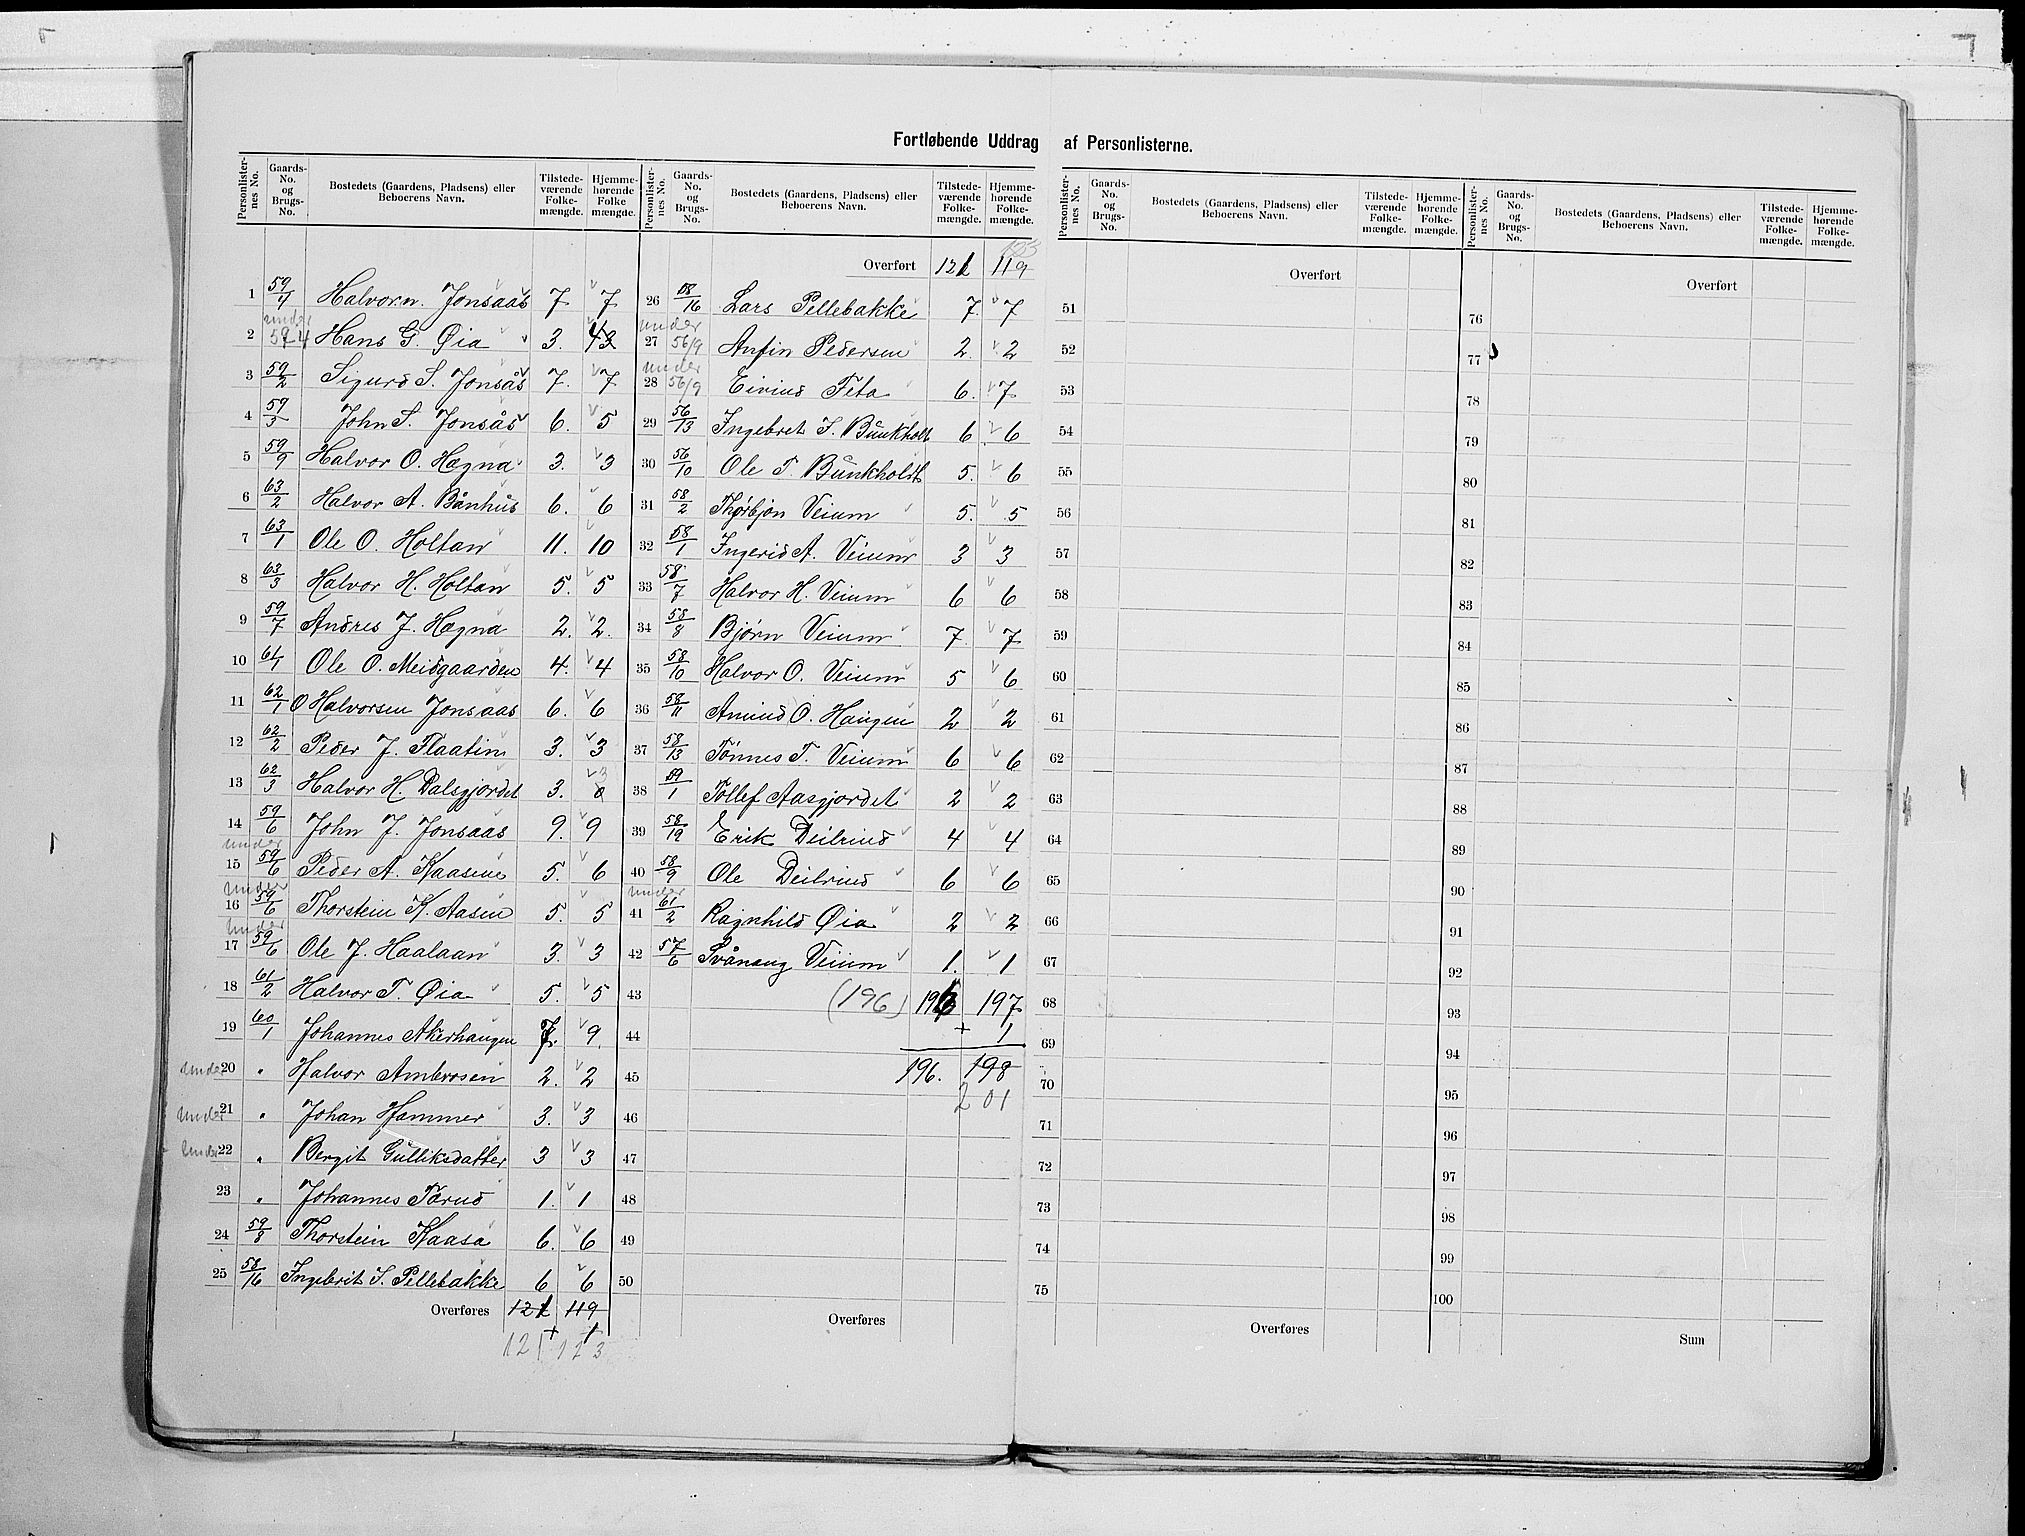 Fortløbende Uddrag af Personlisterne.
Personlister-nes No. Gaards-No. og Brugs-No. Bostedets (Gaardens, Pladsens) eller Beboerens Navn. Tilstede-værende Folke-mængde. Hjemme-hørende Folke mængde.
1 59/4 Halvor n. Jonsaas 7 7
under
2 59/4 Hans G. Øia 3. 3
3 59/2 Sigurd S. Jonsås 7. 7
4 59/3 John S. Jonsås 6. 5
5 59/9 Halvor O. Hægna 3. 3
6 63/2 Halvor A. Bånhus 6. 6
7 63/1 Ole O. Holtan 11. 10
8 63/3 Halvor H. Holtan 5. 5
9 59/7 Andres J. Hægna 2. 2.
10 61/1 Ole O. Meidgaarden 4. 4
11 62/1 O Halvorsen Jonsaas 6. 6
12 62/2 Peder J. Flaatin 3. 3
13 62/3 Halvor H. Dalsgjordet 3. 3
14 59/6 John J. Jonsaas 9. 9
under
15 59/6 Peder A. Kaasene 5. 6
under
16 59/6 Thorstein K. Aasen 5. 5
under
17 59/6 Ole J. Haalaan 3. 3
18 61/2 Halvor T. Øia 5. 5
19 60/1 Johannes Akerhaugen 7. 9.
under 20 " Halvor Ambrosen 2. 2
under 21 " Johan Hammer 3. 3
under 22 " Bergit Gulliksdatter 3 3
23 " Johannes Tårud 1. 1
24 59/8 Thorstein Kaasa 6. 6
25 58/16 Ingebrit S. Pellebakke 6 6
Overføres 121 119
+ 1
121 123
Personlister-nes No. Gaards-No. og Brugs-No. Bostedets (Gaardens, Pladsens) eller Beboerens Navn. Tilstede-værende Folke-mængde. Hjemme-hørende Folke-mængde.
123
Overført 121 119
26 58/16 Lars Pellebakke 7. 7
under
27 56/9 Anfin Pedersen 2. 2
under
28 56/9 Eivind Teta 6. 7
29 56/13 Ingebret T. Bunkholt 6 6
30 56/10 Ole T. Bunkholdt 5. 6
31 58/2 Thorbjon Veium 5. 5
32 58/1 Ingerid A. Veium 3 3
33 58/7 Halvor H. Veium 6 6
34 58/8 Bjørn Veium 7. 7
35 58/10 Halvor O. Veium 5 6
36 58/11 Amund O. Haugen 2 2
37 58/13 Tönnes T. Veium 6 6
38 59/1 Tollef Aasgjordet 2 2
39 58/19 Erik Deilrind 4 4
40 58/9 Ole Deilrind 6 6
under
41 61/2 Ragnhild Øia 2 2
42 57/6 Svånaug Veium 1. 1
43 (196) 196 197
44 + 1
45 196. 198
201
46
47
48
49
50
Overføres
Personlister-nes No. Gaards-No. og Brugs-No. Bostedets (Gaardens, Pladsens) eller Beboerens Navn. Tilstede-værende Folke-mængde. Hjemme-hørende Folke-mængde.
Overført
51
52
53
54
55
56
57
58
59
60
61
62
63
64
65
66
67
68
69
70
71
72
73
74
75
Overføres
Personlister-nes No. Gaards-No. og Brugs-No. Bostedets (Gaardens, Pladsens) eller Beboerens Navn. Tilstede-værende Folke-mængde. Hjemme-hørende Folke-mængde.
Overført
76
77
78
79
80
81
82
83
84
85
86
87
88
89
90
91
92
93
94
95
96
97
98
99
100
Sum